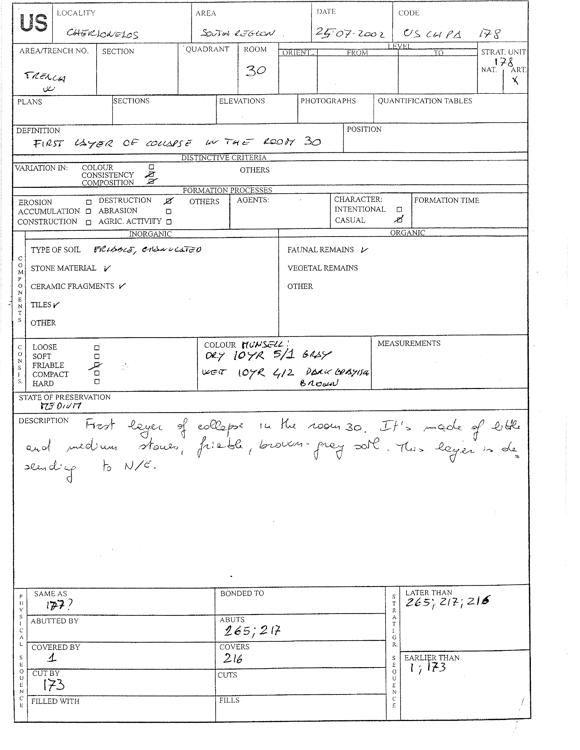 US
LOCALITY
CHERSONESOS
AREA
SOUTH REGION
DATE
25-07-2002
CODE
US CH PA 178
AREA/TRENCH NO.
TRENCH
W
SECTION
QUADRANT
ROOM
30
LEVEL
ORIENT.
FROM
TO
STRAT. UNIT
178
NAT.
ART.
X
PLANS
SECTIONS
ELEVATIONS
PHOTOGRAPHS
QUANTIFICATION TABLES
DEFINITION
FIRST LAYER OF COLLAPSE IN THE ROOM 30
POSITION
DISTINCTIVE CRITERIA
VARIATION IN:
COLOUR
CONSISTENCY
COMPOSITION
OTHERS
FORMATION PROCESSES
EROSION
ACCUMULATION
CONSTRUCTION
DESTRUCTION
ABRASION
AGRIC. ACTIVITY
OTHERS
AGENTS:
CHARACTER:
INTENTIONAL
CASUAL
FORMATION TIME
COMPONENTS
INORGANIC
TYPE OF SOIL FRIABLE, GRANULATED
STONE MATERIAL ✓
CERAMIC FRAGMENTS ✓
TILES ✓
OTHER
ORGANIC
FAUNAL REMAINS ✓
VEGETAL REMAINS
OTHER
CONSIS.
LOOSE
SOFT
FRIABLE
COMPACT
HARD
COLOUR MUNSELL:
DRY 10YR 5/1 GRAY
WET 10YR 4/2 DARK GRAYISH
BROWN
MEASUREMENTS
STATE OF PRESERVATION
MEDIUM
DESCRIPTION First layer of collapse in the room 30. It's made of little
and medium stones, friable, brown-gray soil. This layer is de
sending to N/E.
PHYSICAL SEQUENCE
SAME AS
177?
ABUTTED BY
COVERED BY
1
CUT BY
173
FILLED WITH
BONDED TO
ABUTS
265; 217
COVERS
216
CUTS
FILLS
STRATIGR. SEQUENCE
LATER THAN
265; 217; 216
EARLIER THAN
1; 173